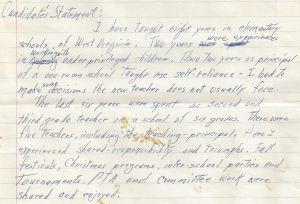 Candidate's Statement:
I have taught eight years in elementary
schools of West Virginia. Two years were experiences
working with underprivileged children. These two years as principal
of a one-room school taught me self-reliance. I had to
make some decisions the new teacher does not usually face.
The last six years were spent as second and
third grade teacher in a school of six grades. There were
five teachers, including the teaching-principal. Here I
experienced shared-responsibility and triumphs. Fall
festivals, Christmas programs, inter-school parties and
Tournaments, PTA, and committee work were
shared and enjoyed.